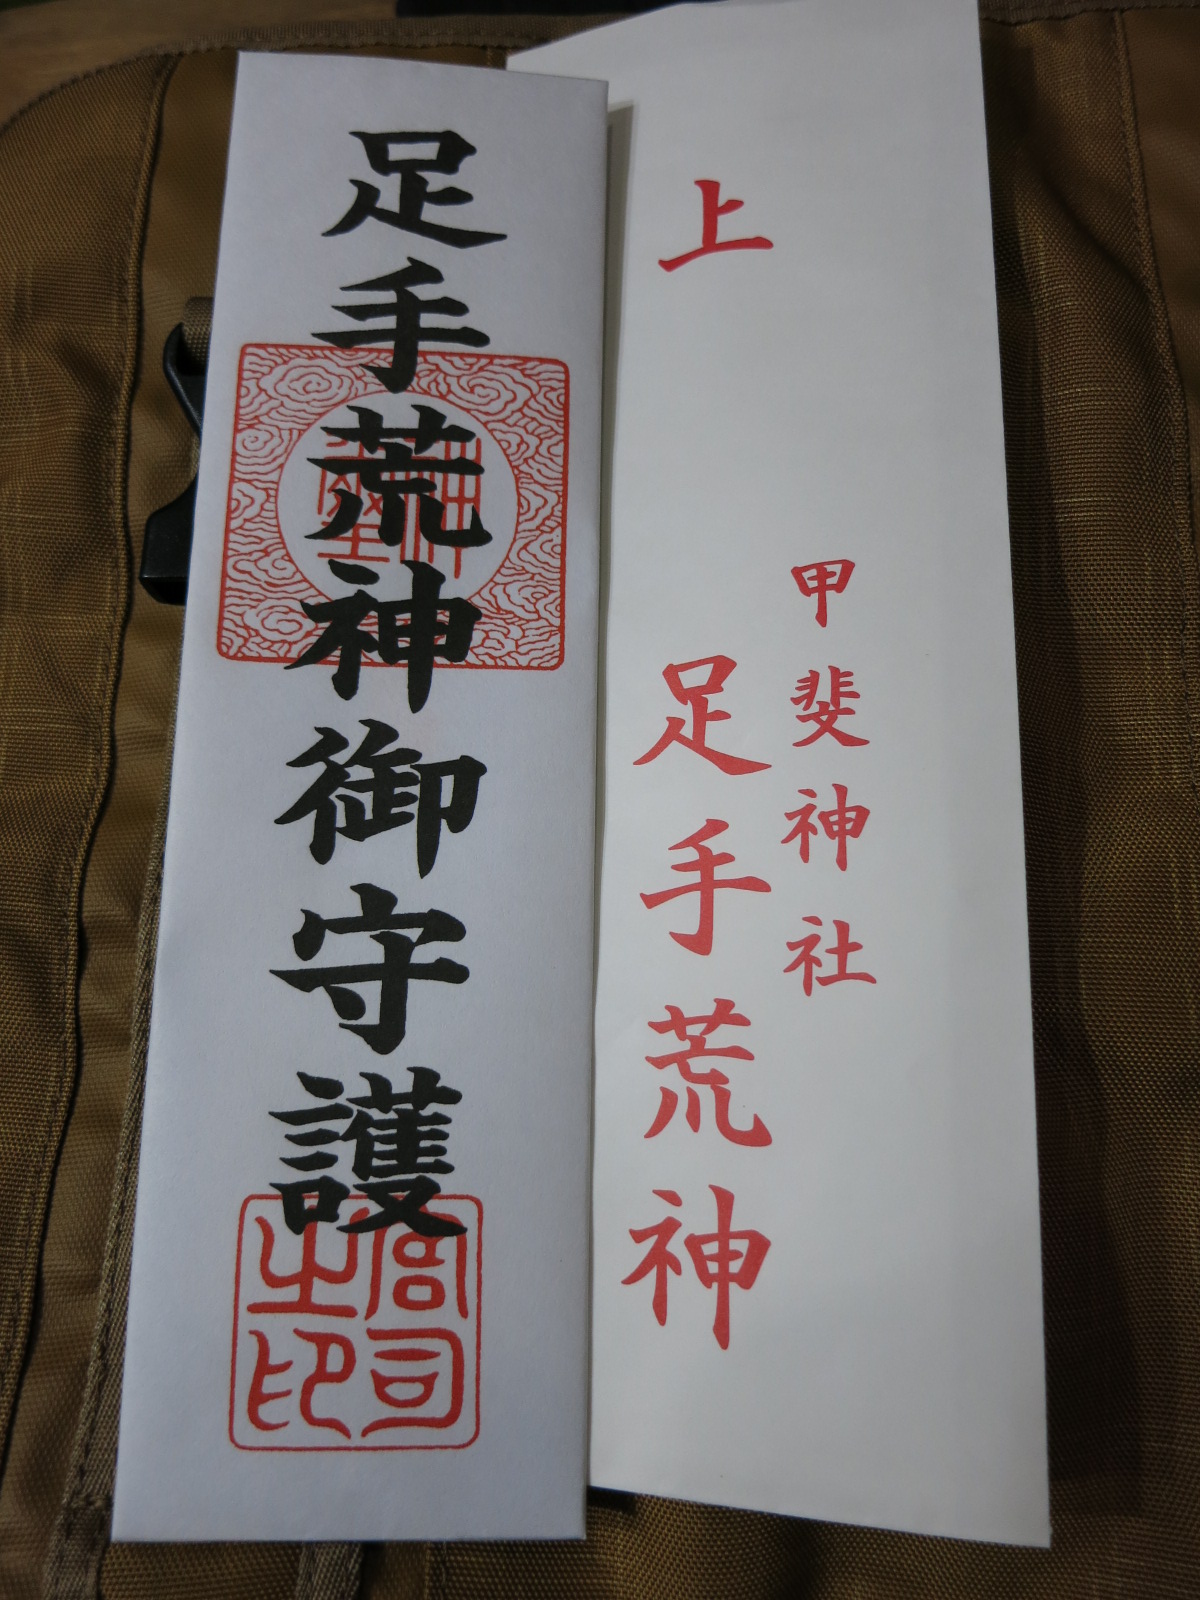 足手荒神御守護
宮司
之印
上
甲斐神社
足手荒神